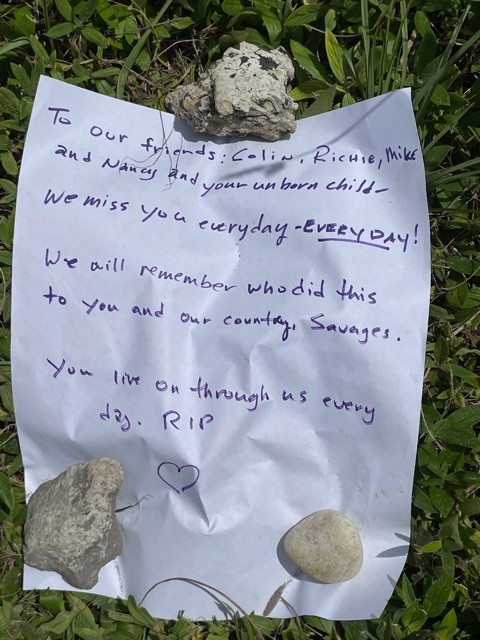 To our friends: Colin, Richie, Mike
and Nancy and your unborn child-
We miss you everyday - EVERYDAY!
We will remember who did this
to you and our country, Savages.
You live on through us every
day. RIP